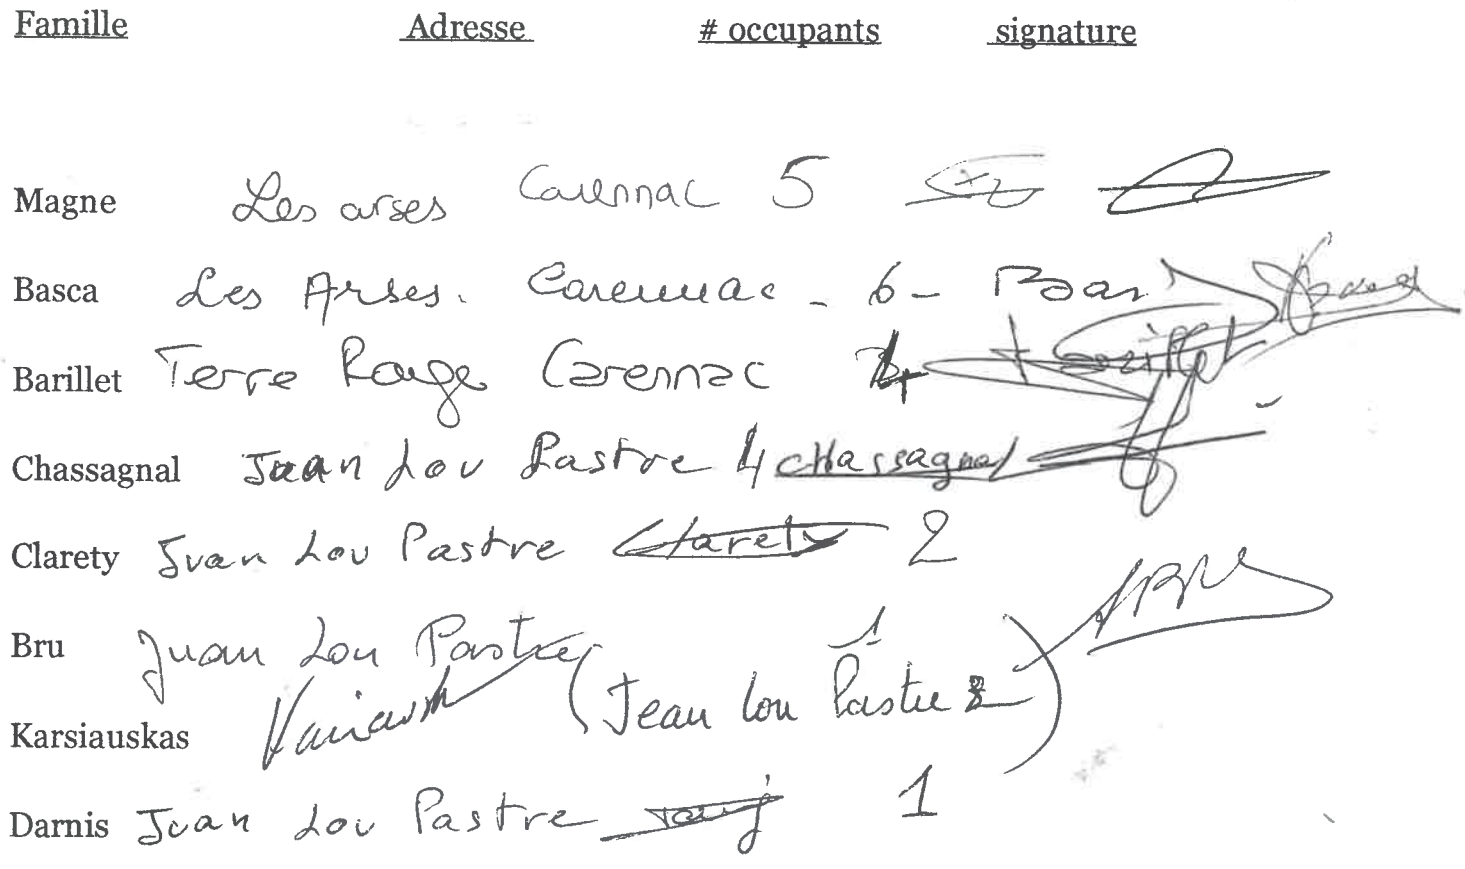 Famille Adresse # occupants signature
Magne Les arses Carennac 5
Basca Les Arses. Carennac - 6 -
Barillet Terre Rouge Carennac 4 Barillet
Chassagnal Juan Lou Pastre 4 CHassagnal
Clarety Juan Lou Pastre Clarety 2
Bru Juan Lou Pastre 1 BRU
Karsiauskas (Jean Lou Pastre 2)
Darnis Juan Lou Pastre 1